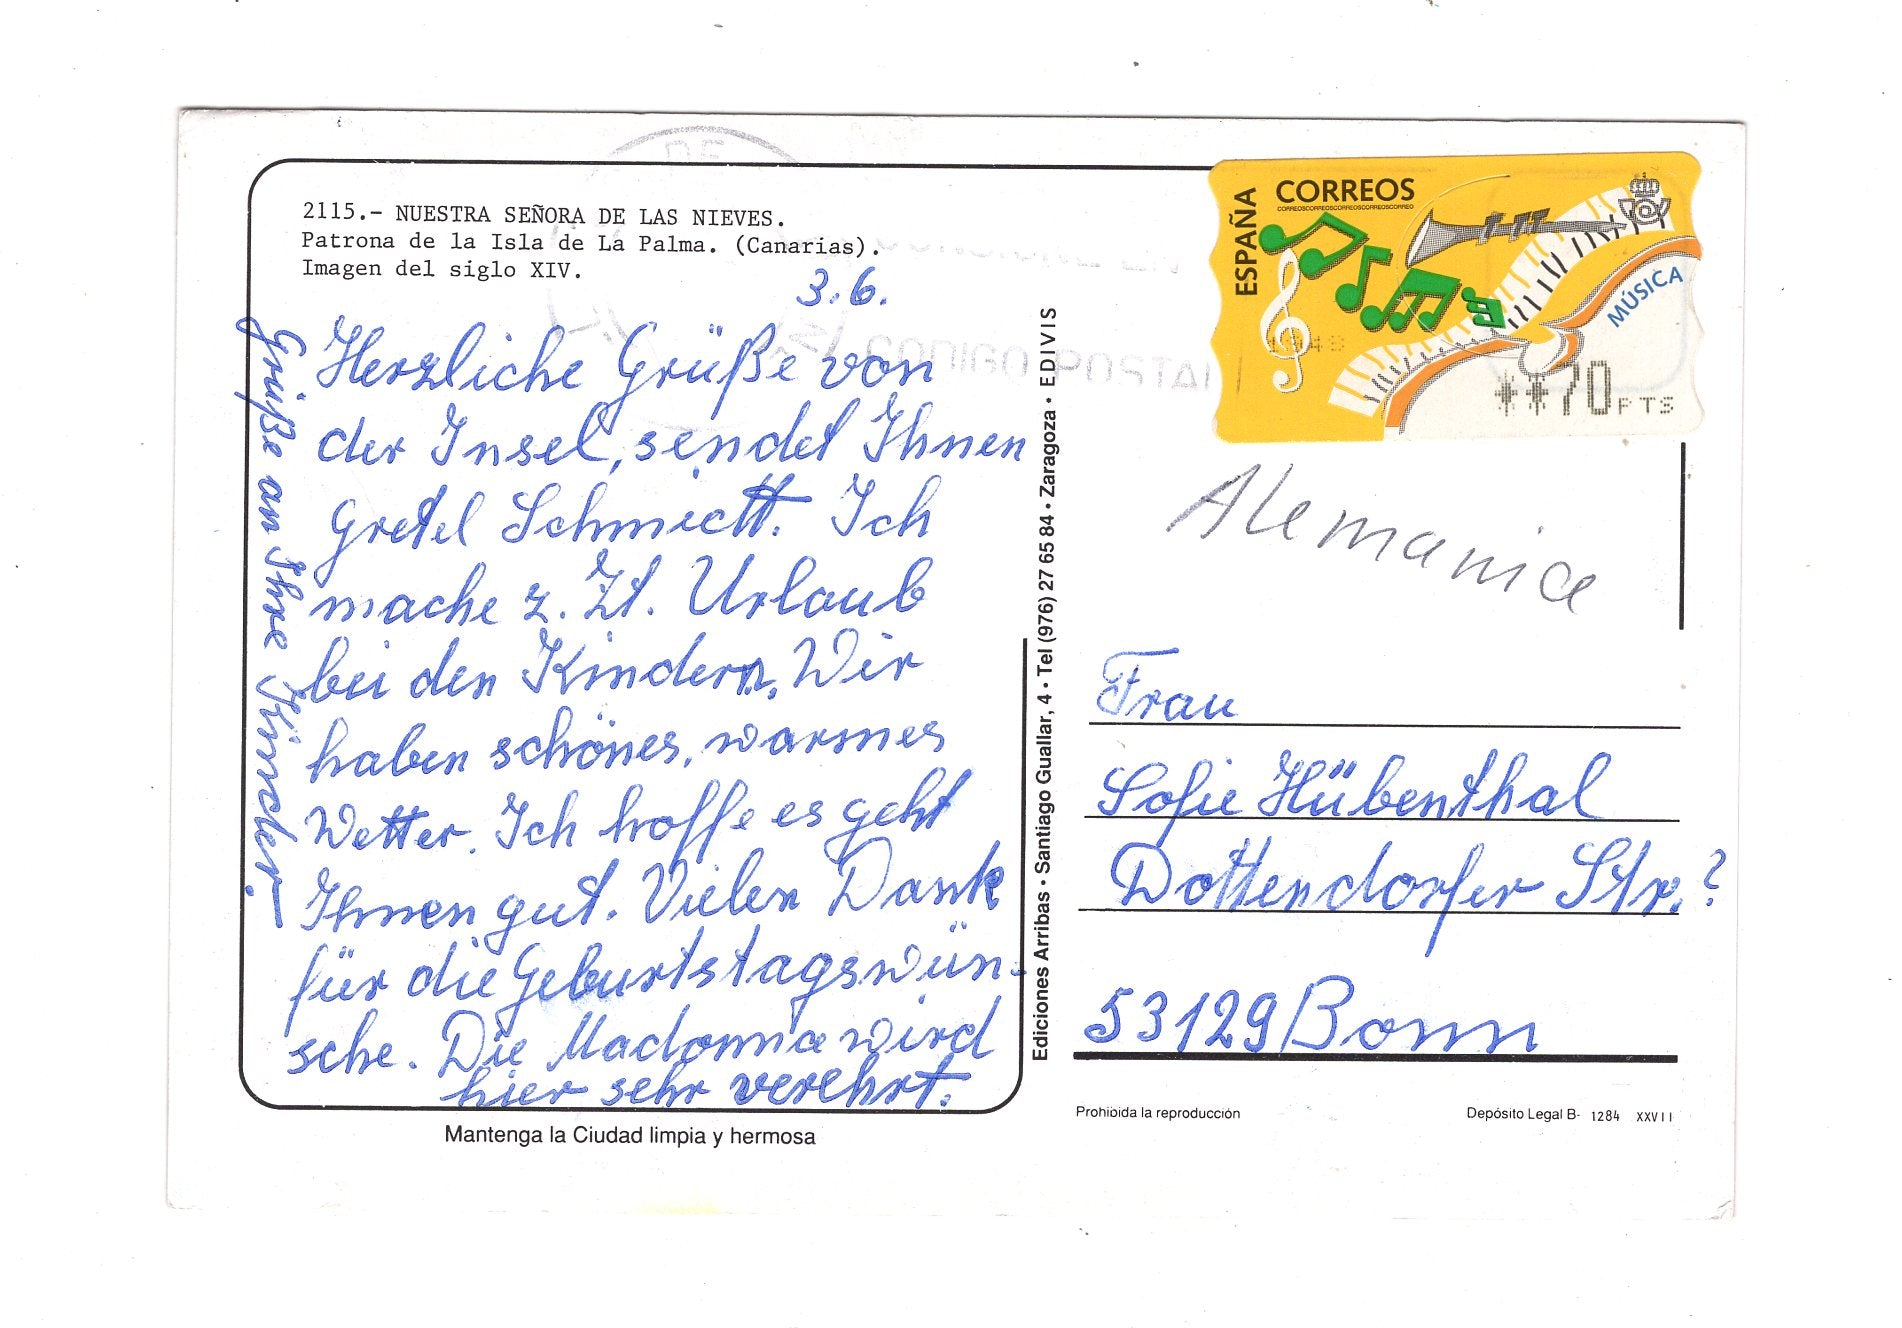 2115.- NUESTRA SEÑORA DE LAS NIEVES.
Patrona de la Isla de La Palma. (Canarias).
Imagen del siglo XIV.
3.6.
Herzliche Grüße von
der Insel, sendet Ihnen
Gretel Schmidt. Ich
mache z. Zt. Urlaub
bei den Kindern. Wir
haben schönes, warmes
Wetter. Ich hoffe es geht
Ihnen gut. Vielen Dank
für die Geburtstagswün-
sche. Die Madonna wird
hier sehr verehrt.
Grüße an Ihre Kinder.
Mantenga la Ciudad limpia y hermosa
Ediciones Arribas • Santiago Guallar, 4 • Tel (976) 27 65 84 • Zaragoza • EDIVIS
DE
CODIGO POSTAL
ESPAÑA
CORREOS
CORREOSCORREOSCORREOSCORREOSCORREO
MÚSICA
**70 PTS
Alemania
Frau
Sofie Hübenthal
Dottendorfer Str. ?
53129 Bonn
Prohibida la reproducción
Depósito Legal B- 1284 XXVII